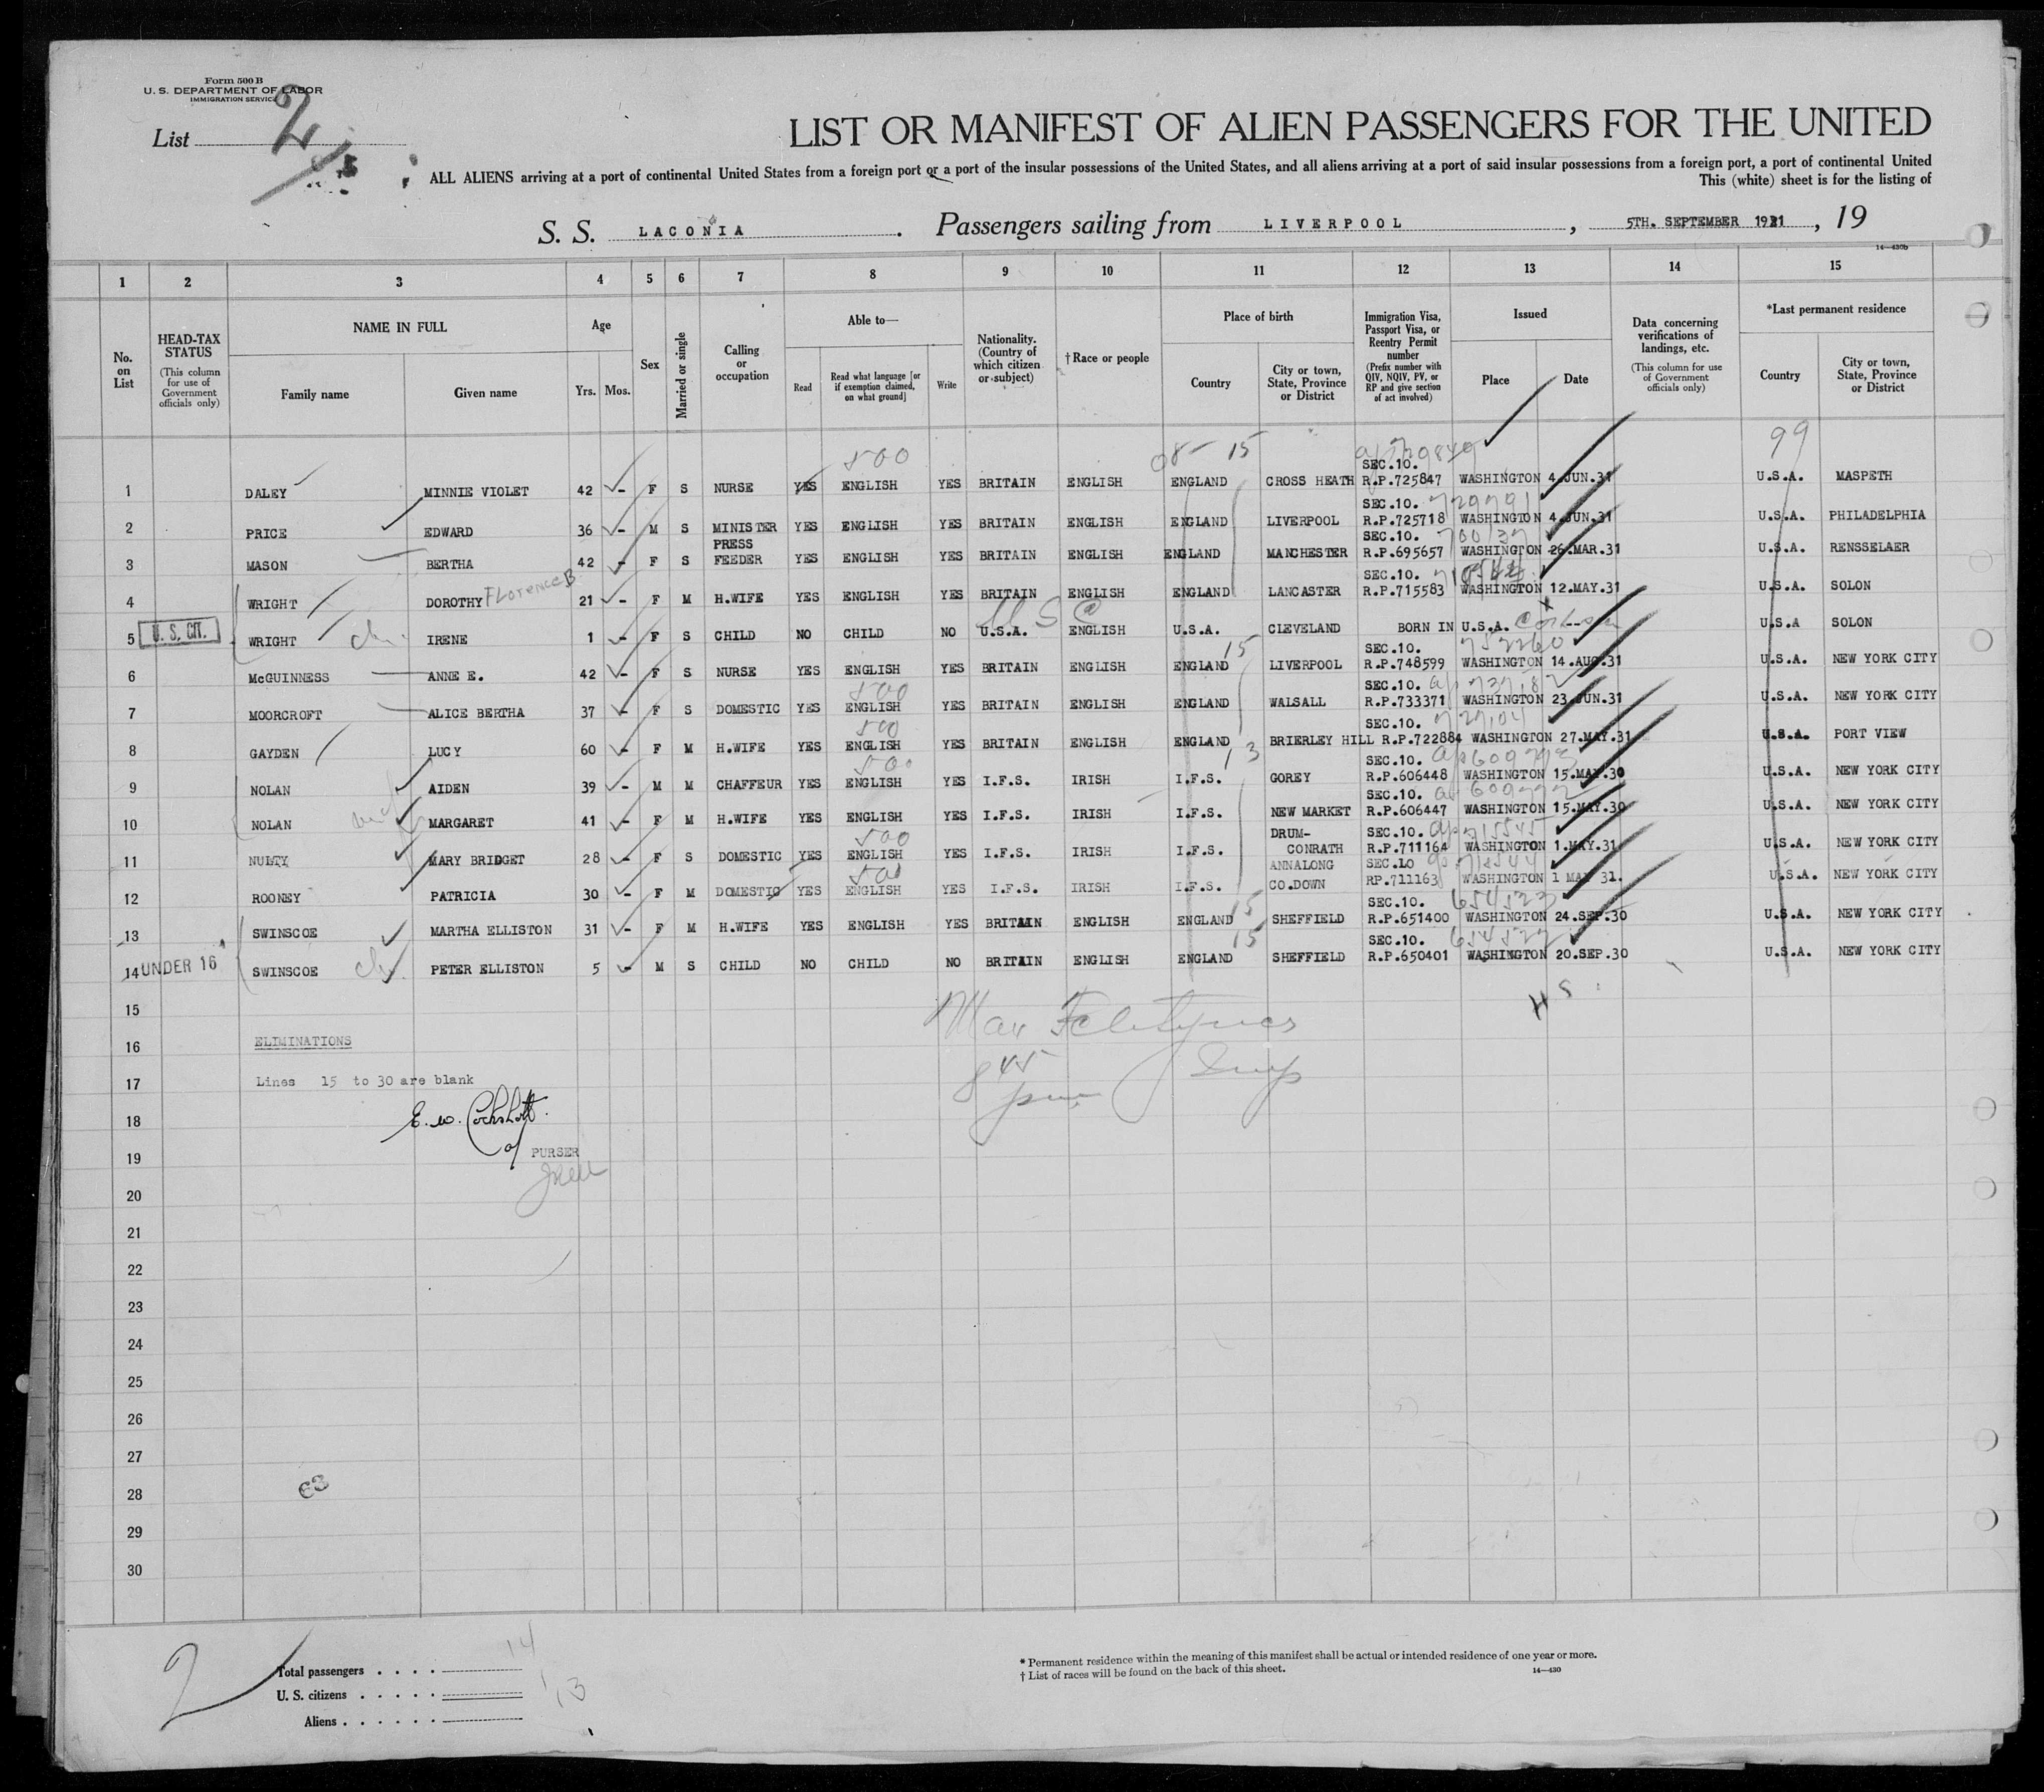 Form 500 B
U. S. DEPARTMENT OF LABOR
IMMIGRATION SERVICE
List 2
LIST OR MANIFEST OF ALIEN PASSENGERS FOR THE UNITED
ALL ALIENS arriving at a port of continental United States from a foreign port or a port of the insular possessions of the United States, and all aliens arriving at a port of said insular possessions from a foreign port, a port of continental United
This (white) sheet is for the listing of
S. S. LACONIA . Passengers sailing from LIVERPOOL , 5TH. SEPTEMBER 1931 , 19
14—430b
1 2 3 4 5 6 7 8 9 10 11 12 13 14 15
No. on List
HEAD-TAX STATUS (This column for use of Government officials only)
NAME IN FULL
Family name
Given name
Age
Yrs. Mos.
Sex
Married or single
Calling or occupation
Able to—
Read
Read what language [or if exemption claimed, on what ground]
Write
Nationality. (Country of which citizen or subject)
†Race or people
Place of birth
Country
City or town, State, Province or District
Immigration Visa, Passport Visa, or Reentry Permit number (Prefix number with QIV, NQIV, PV, or RP and give section of act involved)
Issued
Place
Date
Data concerning verifications of landings, etc. (This column for use of Government officials only)
*Last permanent residence
Country
City or town, State, Province or District
500 08- 15 99
1 DALEY MINNIE VIOLET 42 - F S NURSE YES ENGLISH YES BRITAIN ENGLISH ENGLAND CROSS HEATH SEC.10. R.P.725847 WASHINGTON 4.JUN.31 U.S.A. MASPETH
2 PRICE EDWARD 36 - M S MINISTER YES ENGLISH YES BRITAIN ENGLISH ENGLAND LIVERPOOL SEC.10. R.P.725718 WASHINGTON 4.JUN.31 U.S.A. PHILADELPHIA
3 MASON BERTHA 42 - F S PRESS FEEDER YES ENGLISH YES BRITAIN ENGLISH ENGLAND MANCHESTER SEC.10. R.P.695657 WASHINGTON 26.MAR.31 U.S.A. RENSSELAER
4 WRIGHT DOROTHY Florence B 21 - F M H.WIFE YES ENGLISH YES BRITAIN ENGLISH ENGLAND LANCASTER SEC.10. R.P.715583 WASHINGTON 12.MAY.31 U.S.A. SOLON
U S C
5 U. S. CIT. WRIGHT ch. IRENE 1 - F S CHILD NO CHILD NO U.S.A. ENGLISH U.S.A. CLEVELAND BORN IN U.S.A. -- U.S.A SOLON
15 752260
6 McGUINNESS ANNE E. 42 - F S NURSE YES ENGLISH YES BRITAIN ENGLISH ENGLAND LIVERPOOL SEC.10. R.P.748599 WASHINGTON 14.AUG.31 U.S.A. NEW YORK CITY
500
7 MOORCROFT ALICE BERTHA 37 - F S DOMESTIC YES ENGLISH YES BRITAIN ENGLISH ENGLAND WALSALL SEC.10. R.P.733371 WASHINGTON 23.JUN.31 U.S.A. NEW YORK CITY
500
8 GAYDEN LUCY 60 - F M H.WIFE YES ENGLISH YES BRITAIN ENGLISH ENGLAND BRIERLEY HILL SEC.10. R.P.722884 WASHINGTON 27.MAY.31 U.S.A. PORT VIEW
500 13
9 NOLAN AIDEN 39 - M M CHAFFEUR YES ENGLISH YES I.F.S. IRISH I.F.S. GOREY SEC.10. R.P.606448 WASHINGTON 15.MAY.30 U.S.A. NEW YORK CITY
10 NOLAN MARGARET 41 - F M H.WIFE YES ENGLISH YES I.F.S. IRISH I.F.S. NEW MARKET SEC.10. R.P.606447 WASHINGTON 15.MAY.30 U.S.A. NEW YORK CITY
500
11 NULTY MARY BRIDGET 28 - F S DOMESTIC YES ENGLISH YES I.F.S. IRISH I.F.S. DRUM-CONRATH SEC.10. R.P.711164 WASHINGTON 1.MAY.31 U.S.A. NEW YORK CITY
500
12 ROONEY PATRICIA 30 - F M DOMESTIC YES ENGLISH YES I.F.S. IRISH I.F.S. ANNALONG CO.DOWN SEC.10 RP.711163 WASHINGTON 1 MAY 31. U.S.A. NEW YORK CITY
15 654523
13 SWINSCOE MARTHA ELLISTON 31 - F M H.WIFE YES ENGLISH YES BRITAIN ENGLISH ENGLAND SHEFFIELD SEC.10. R.P.651400 WASHINGTON 24.SEP.30 U.S.A. NEW YORK CITY
15 654522
14 UNDER 16 SWINSCOE ch. PETER ELLISTON 5 - M S CHILD NO CHILD NO BRITAIN ENGLISH ENGLAND SHEFFIELD SEC.10. R.P.650401 WASHINGTON 20.SEP.30 U.S.A. NEW YORK CITY
15
16 ELIMINATIONS
17 Lines 15 to 30 are blank
845 pm Insp
18 E. W. Cockshott.
19 PURSER
20
21
22
23
24
25
26
27
28
63
29
30
2
Total passengers . . . . 14
U. S. citizens . . . . . 1
Aliens . . . . . . 13
* Permanent residence within the meaning of this manifest shall be actual or intended residence of one year or more.
† List of races will be found on the back of this sheet.
14—430